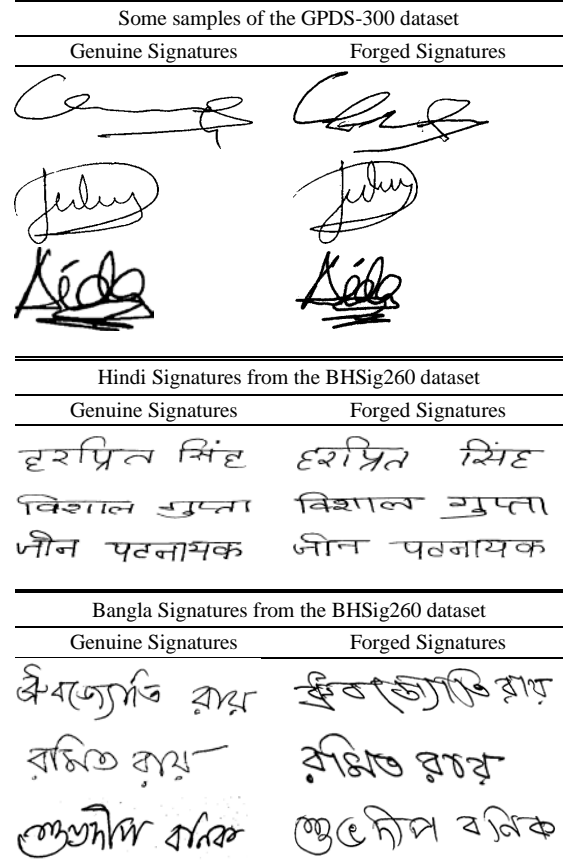 Some samples of the GPDS-300 dataset
Genuine Signatures Forged Signatures
Hindi Signatures from the BHSig260 dataset
Genuine Signatures Forged Signatures
हरप्रित सिंह हरप्रित सिंह
विशाल गुप्ता विशाल गुप्ता
जीन पटनायक जीन पटनायक
Bangla Signatures from the BHSig260 dataset
Genuine Signatures Forged Signatures
ধ্রুবজ্যোতি রায় ধ্রুবজ্যোতি রায়
রমিত রায় রমিত রায়
শুভদীপ বনিক শুভদীপ বনিক